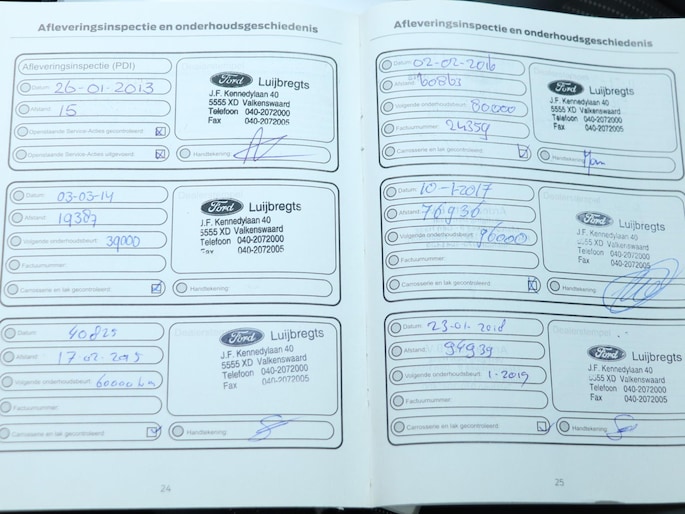 Afleveringsinspectie en onderhoudsgeschiedenis
Afleveringsinspectie (PDI)
Datum: 26-01-2013
Afstand: 15
Openstaande Service-Acties gecontroleerd:
Openstaande Service-Acties uitgevoerd:
Ford Luijbregts
J.F. Kennedylaan 40
5555 XD Valkenswaard
Telefoon 040-2072000
Fax 040-2072005
Handtekening:
Datum: 03-03-14
Afstand: 19387
Volgende onderhoudsbeurt: 39000
Factuurnummer:
Carrosserie en lak gecontroleerd:
Ford Luijbregts
J.F. Kennedylaan 40
5555 XD Valkenswaard
Telefoon 040-2072000
Fax 040-2072005
Handtekening:
Datum: 40825
Afstand: 17-02-2015
Volgende onderhoudsbeurt: 60000 km
Factuurnummer:
Carrosserie en lak gecontroleerd:
Ford Luijbregts
J.F. Kennedylaan 40
5555 XD Valkenswaard
Telefoon 040-2072000
Fax 040-2072005
Handtekening:
24
Afleveringsinspectie en onderhoudsgeschiedenis
Datum: 02-02-2016
Afstand: 60863
Volgende onderhoudsbeurt: 80000
Factuurnummer: 24359
Carrosserie en lak gecontroleerd:
Ford Luijbregts
J.F. Kennedylaan 40
5555 XD Valkenswaard
Telefoon 040-2072000
Fax 040-2072005
Handtekening:
Datum: 10-1-2017
Afstand: 76936
Volgende onderhoudsbeurt: 96000
Factuurnummer:
Carrosserie en lak gecontroleerd:
Ford Luijbregts
J.F. Kennedylaan 40
5555 XD Valkenswaard
Telefoon 040-2072000
Fax 040-2072005
Handtekening:
Datum: 23-01-2018
Afstand: 94939
Volgende onderhoudsbeurt: 1-2019
Factuurnummer:
Carrosserie en lak gecontroleerd:
Ford Luijbregts
J.F. Kennedylaan 40
5555 XD Valkenswaard
Telefoon 040-2072000
Fax 040-2072005
Handtekening:
25